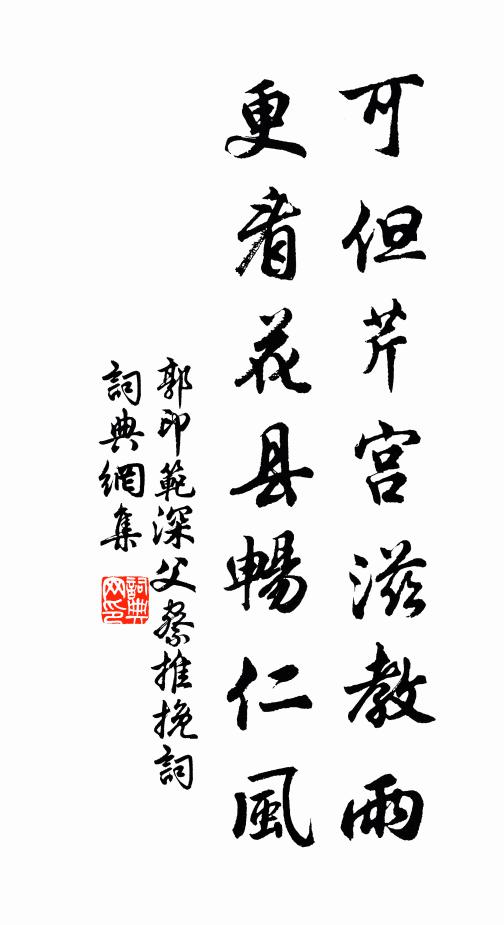 可但芹宫滋教雨
更看花县暢仁風
郭印範深父察推挽詞
詞典網集
詞典網印